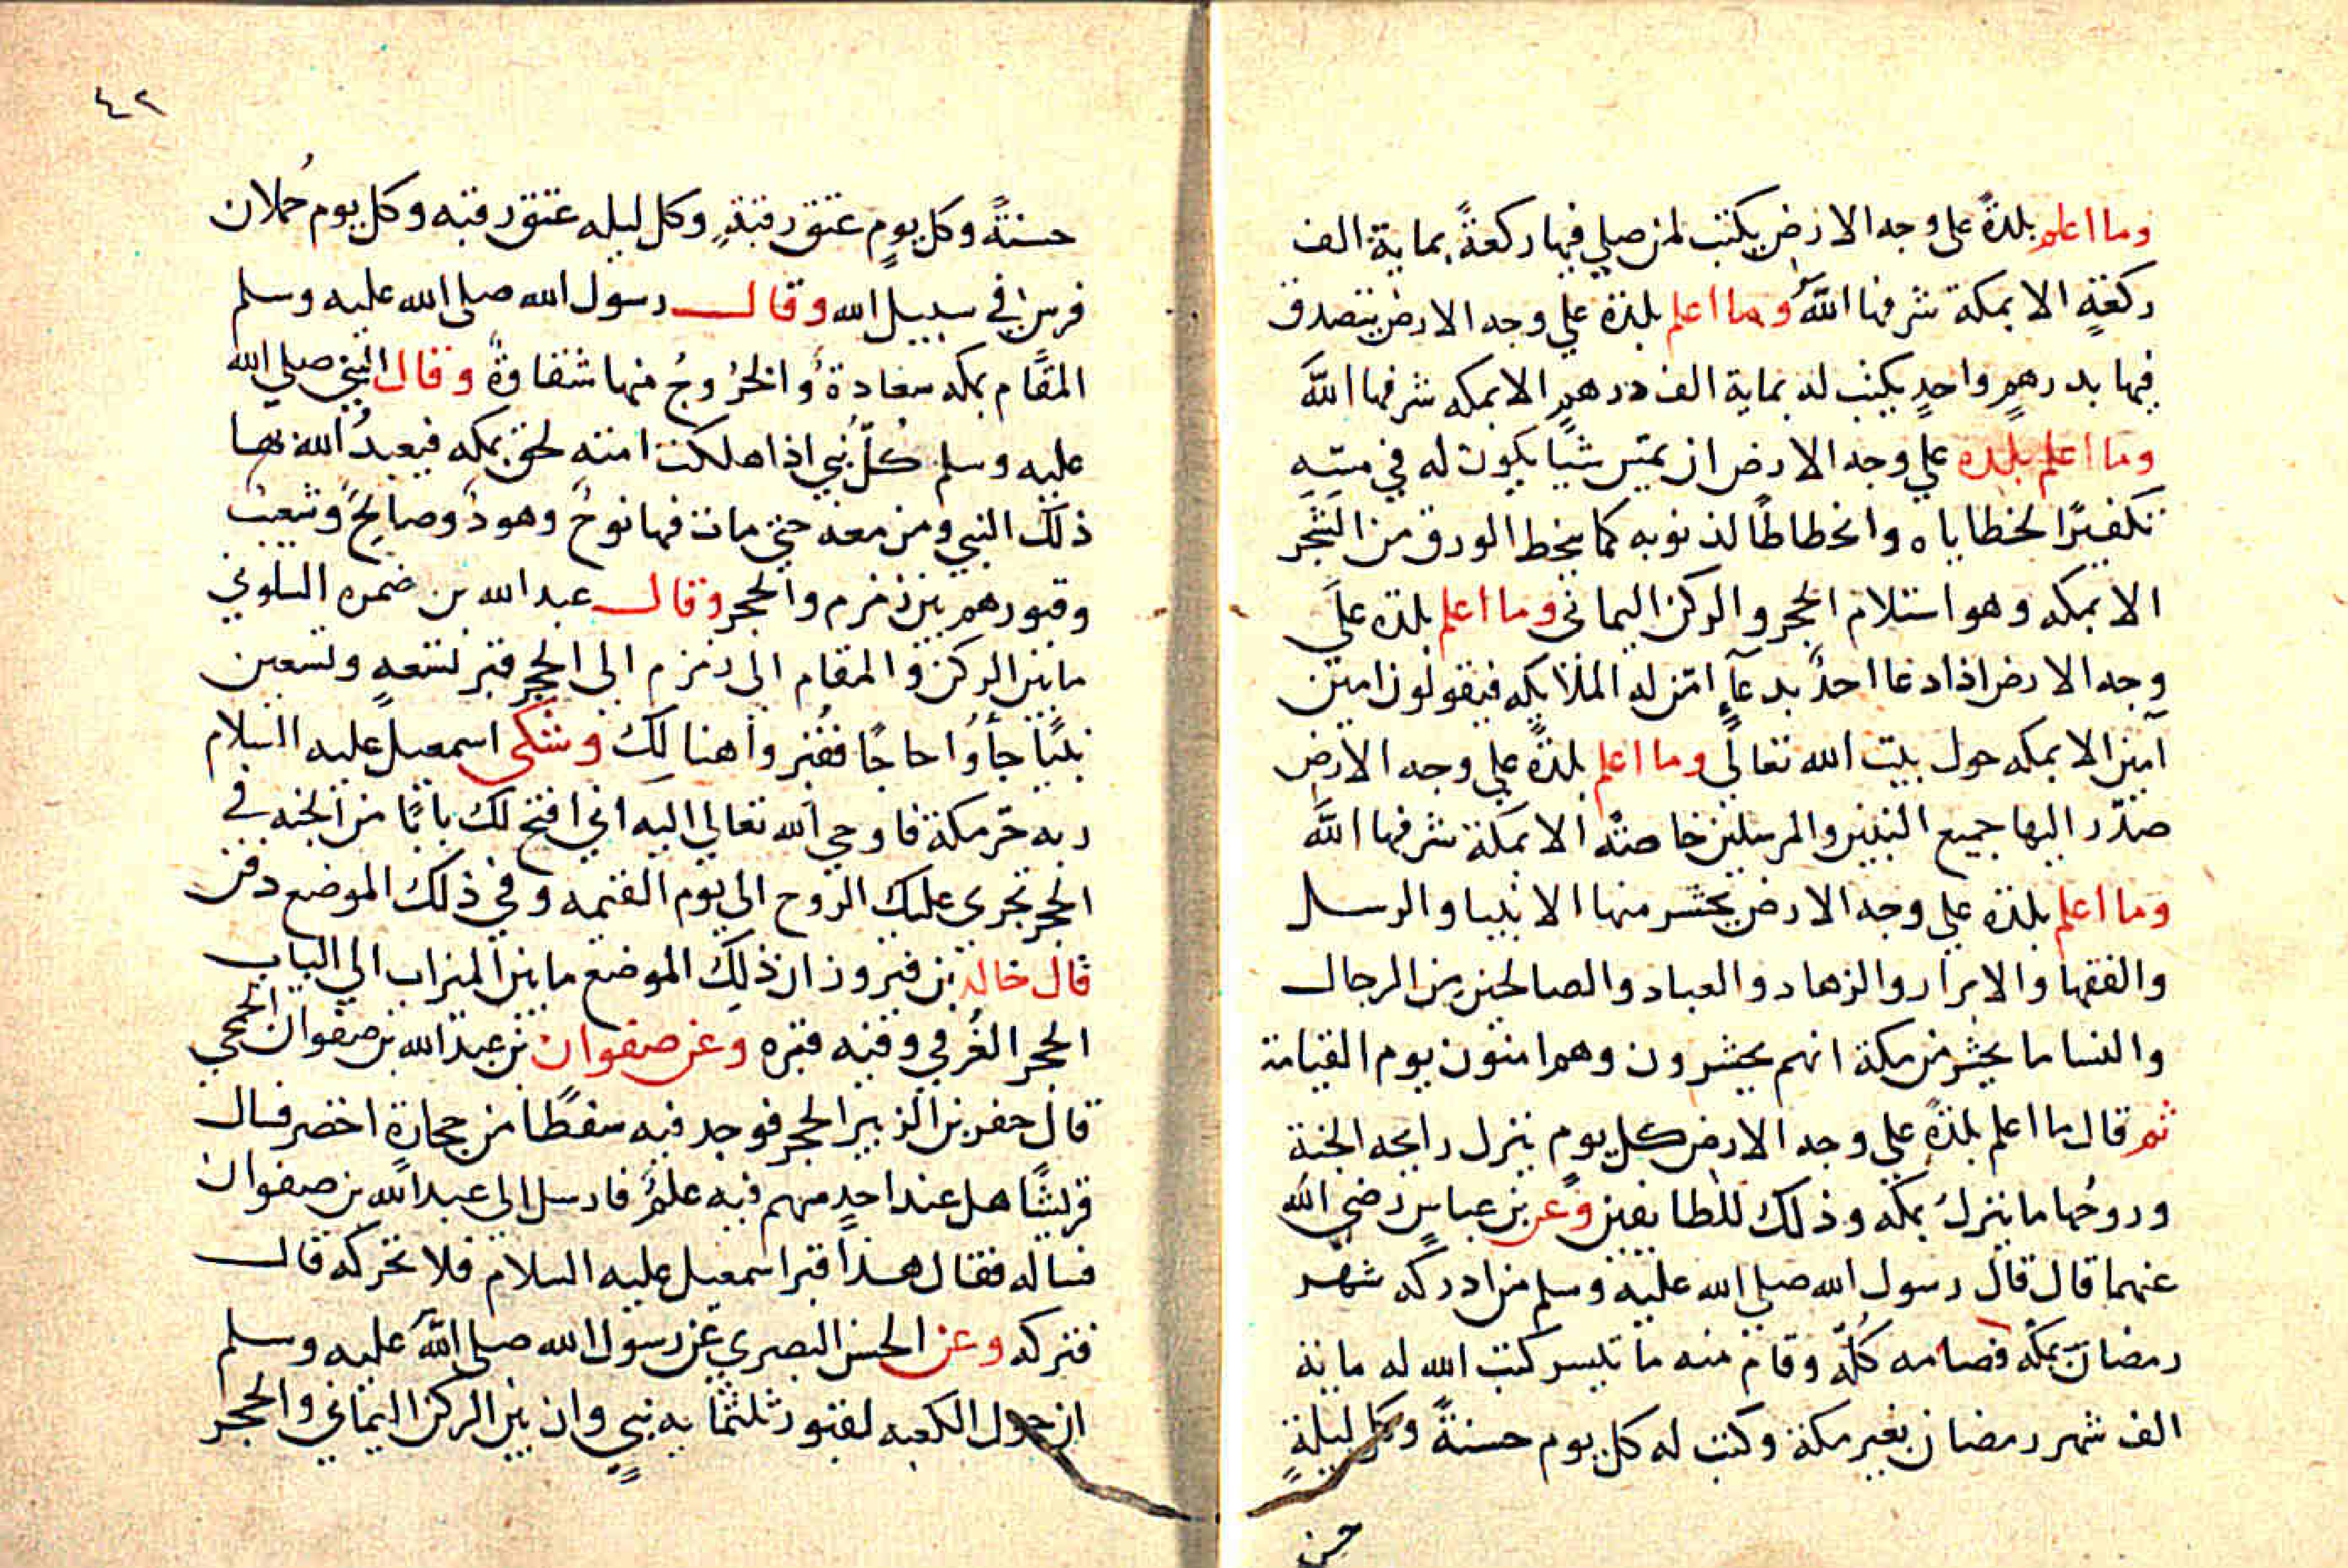 وما اعلم بلدةً على وجه الارض يكتب لمن صلى فيها ركعةً بماية الف
ركعةٍ الا بمكة شرفها اللهُ وما اعلم بلدة علي وجه الارض يتصدق
فيها بدرهمٍ واحدٍ يكتب له بماية الف درهمٍ الا بمكه شرفها الله
وما اعلم بلده علي وجه الارض ان يمس شيا يكون له في مسه
تكفيرًا لخطاياه وانحطاطًا لذنوبه كما ينحط الورق من الشجر
الا بمكه وهو استلام الحجر والركن اليماني وما اعلم بلدة علي
وجه الارض اذا دعا احدٌ بدعآءٍ امن له الملايكه فيقولون امين
آمين الا بمكه حول بيت الله تعالي وما اعلم بلدةً علي وجه الارض
صدّر اليها جميع النبيين والمرسلين خاصته الا بمكة شرفها الله
وما اعلم بلدة علي وجه الارض يحشر منها الانبيا والرسل
والفقها والابرار والزهاد والعباد والصالحين من الرجال
والنسا ما يحشر من مكة انهم يحشرون وهم امنون يوم القيامة
ثم قال ما اعلم بلدةً علي وجه الارض كل يومٍ ينزل رايحه الجنة
وروحُها ما ينزلُ بمكه وذلك للطايفين وعن بن عباسٍ رضي الله
عنهما قال قال رسول الله صلي الله عليه وسلم من ادركه شهر
رمضان بمكه فصامه كُلّه وقام منه ما تيسر كتب الله له ماية
الف شهر رمضان بغير مكة وكتب له كل يوم حسنةً وكل ليلةٍ
حسنـ
٤٢
حسنةً وكل يومٍ عتق رقبةٍ وكل ليله عتق رقبه وكل يوم حُملان
فرسٍ في سبيل الله وقال رسول الله صلى الله عليه وسلم
المقام بمكه سعادةٌ والخُرُوجُ منها شقاوةٌ وقال النبي صلي الله
عليه وسلم كُلّ نبي اذا هلكت امته لحق بمكه فيعبدُ الله بها
ذلك النبي ومن معه حتي مات فيها نوحٌ وهودٌ وصالحٌ وشعيب
وقبورهم بين زمزم والحجر وقال عبد الله بن ضمره السلولي
ما بين الركن والمقام الي زمزم الي الحجر قبر تسعةٍ وتسعين
نبيًا جأوُا حاجًا فقُبروا هنالك وشكي اسمعيل عليه السلام
ربه حر مكة فاوحي الله تعالي اليه اني افتح لك بابًا من الجنه في
الحجر تجري عليك الروح الي يوم القيمه وفي ذلك الموضع دفن
قال خالد بن فيروز ان ذلك الموضع ما بين الميزاب الي الباب
الحجر الغربي وفيه قبره وعن صفوان بن عبد الله بن صفوان الجمحي
قال حفر بن الزبير الحجر فوجد فيه سفطًا من حجارة اخضر فسال
قريشًا هل عند احدٍ منهم فيه علمٌ فارسل الي عبد الله بن صفوان
فساله فقال هذا قبر اسمعيل عليه السلام فلا تحركه قال
فتركه وعن الحسن البصري عن رسول الله صلى الله عليه وسلم
ان حول الكعبه لقبور ثلثمايه نبيٍ وان بين الركن اليماني والحجر